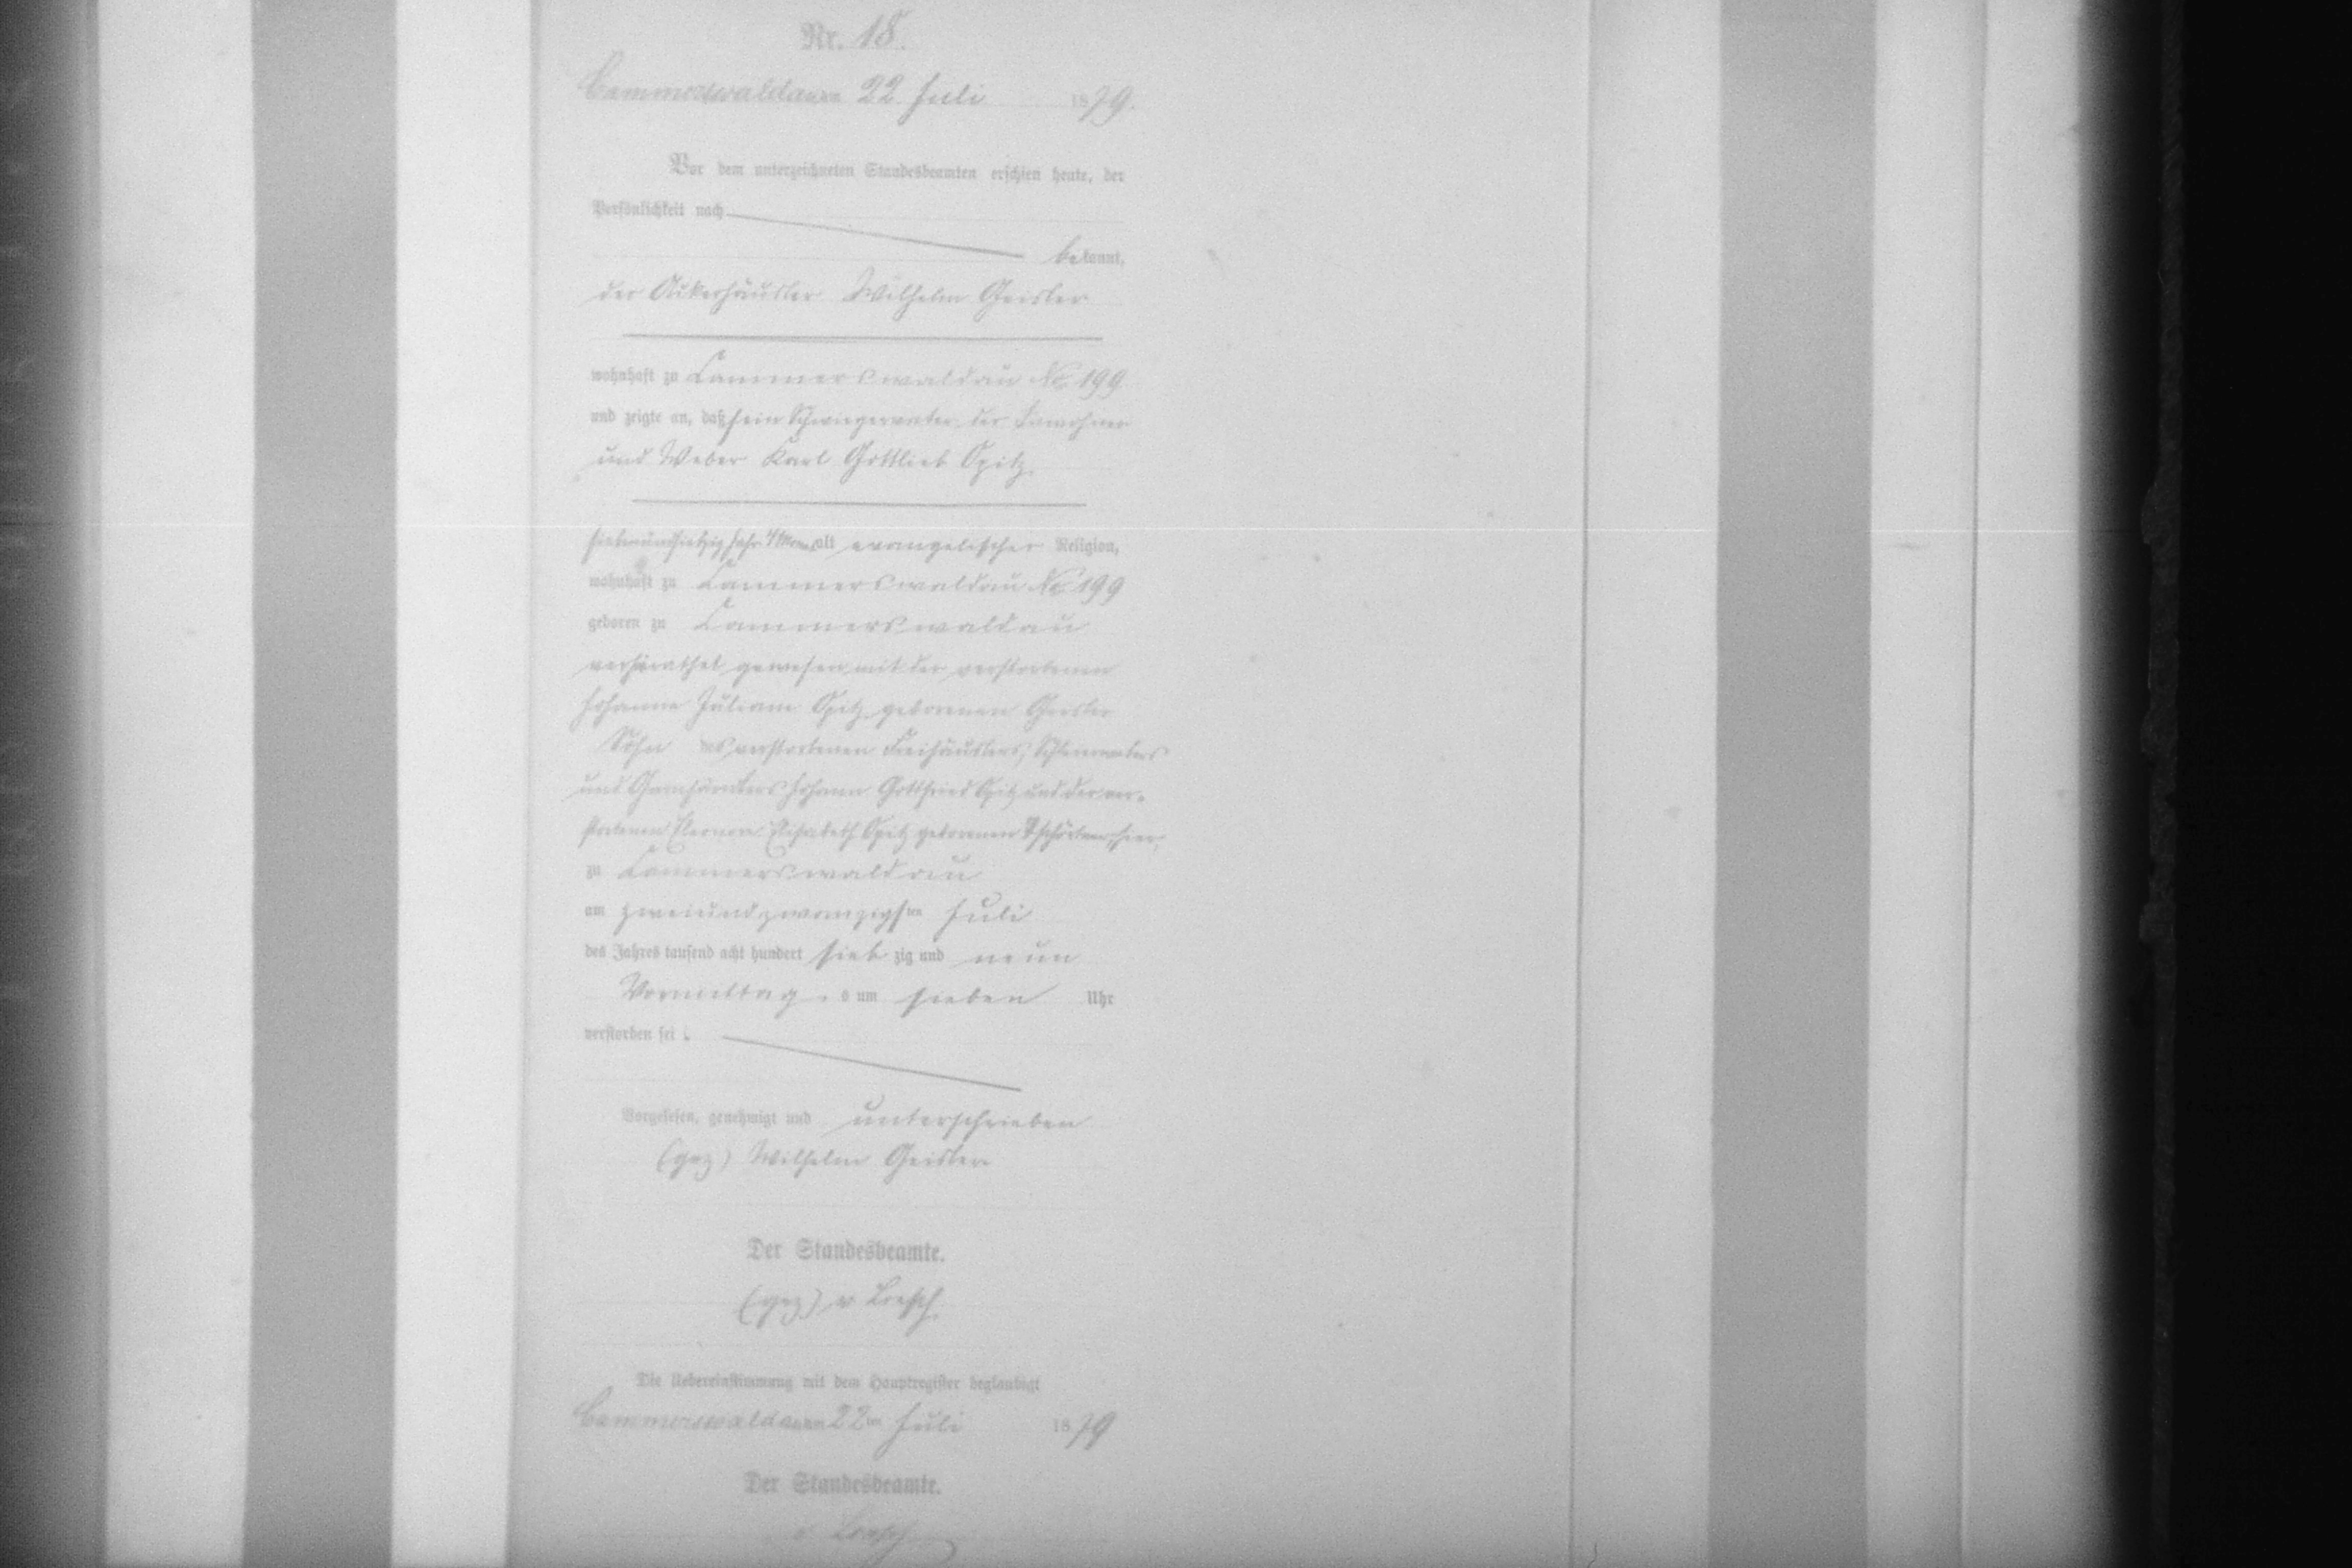 Nr. 18.
Cammerswaldau am 22 Juli 1879.
Vor dem unterzeichneten Standesbeamten erschien heute, der
Persönlichkeit nach
bekannt,
der Ackerhäusler Wilhelm Geisler
wohnhaft zu Cammerswaldau No 199
und zeigte an, daß sein Schwiegervater, der Inwohner
und Weber Karl Gottlieb Spitz
siebenundsiebzig Jahr 4 Monat alt evangelischer Religion,
wohnhaft zu Cammerswaldau No 199
geboren zu Cammerswaldau
verheirathet gewesen mit der verstorbenen
Johanne Juliane Spitz geborenen Geisler
Sohn des verstorbenen Freihäuslers,
und Johann Gottfried Spitz und der ver-
storbenen Eleonore Elisabeth Spitz geborenen hier,
zu Cammerswaldau
am zweiundzwanzigsten Juli
des Jahres tausend acht hundert siebzig und neun
Vormittags um sieben Uhr
verstorben sei.
Vorgelesen, genehmigt und unterschrieben
(gez) Wilhelm Geisler
Der Standesbeamte.
(gez) v Loesch
Die Uebereinstimmung mit dem Hauptregister beglaubigt
Cammerswaldau am 22ten Juli 1879
Der Standesbeamte.
v Loesch